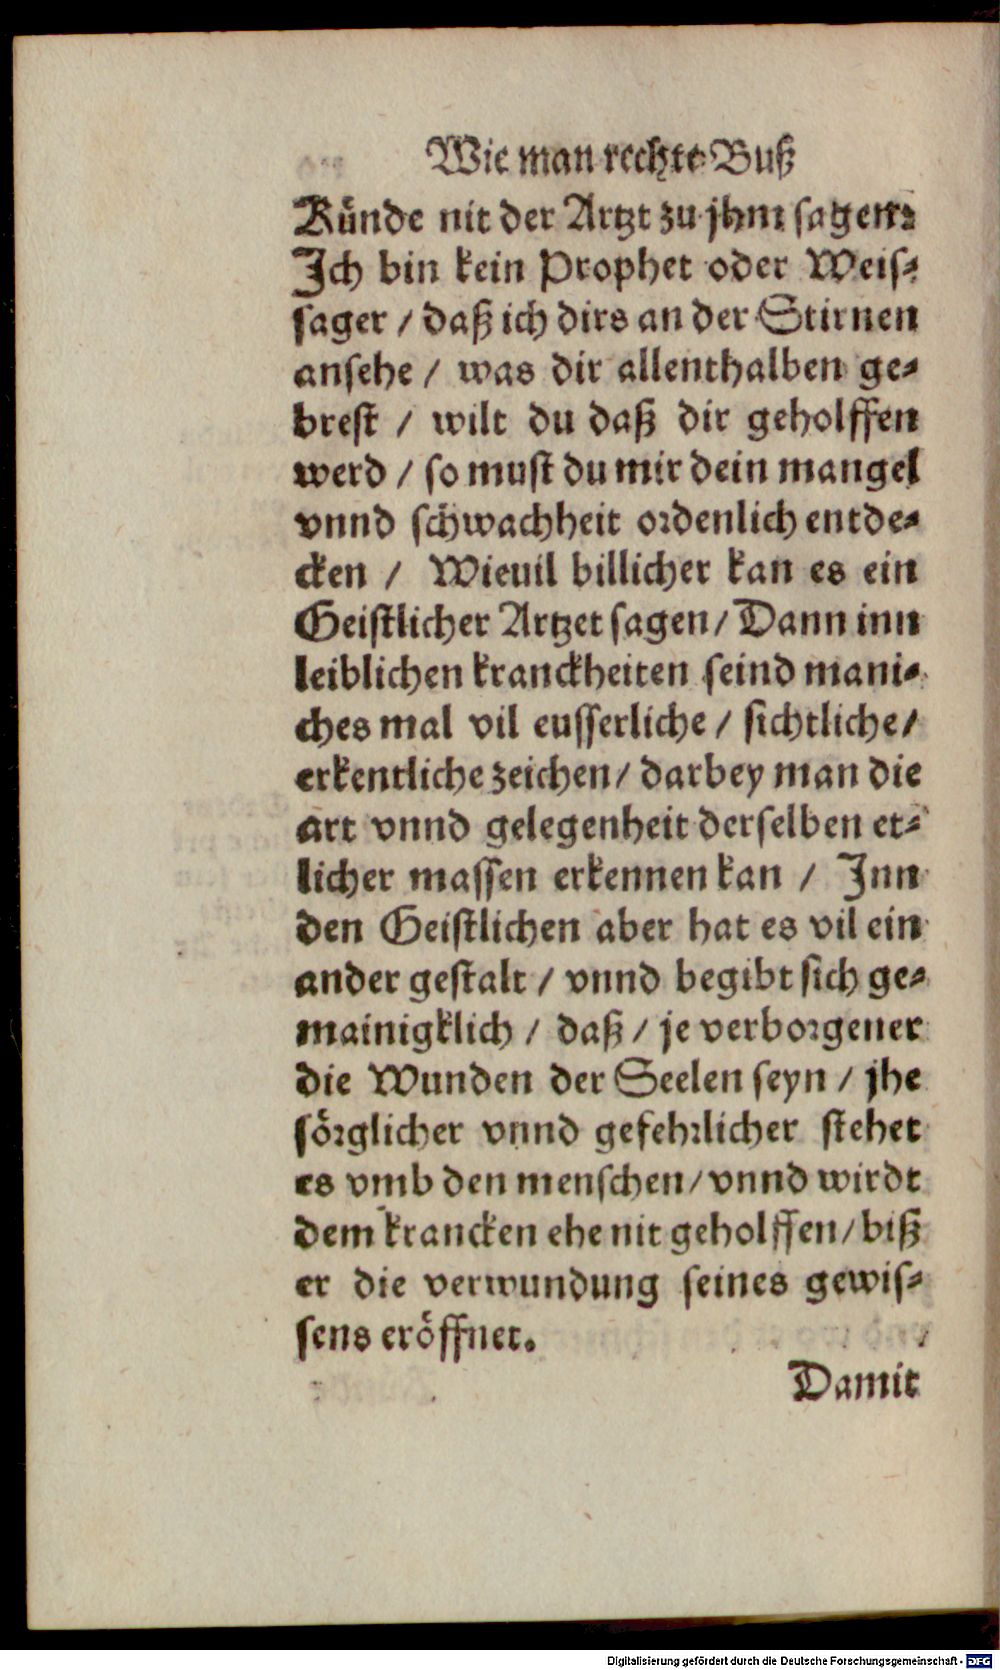 Wie man rechte Buß
Künde nit der Artzt zu jhm sagen:
Ich bin kein Prophet oder Weis-
sager / daß ich dirs an der Stirnen
ansehe / was dir allenthalben ge-
brest / wilt du daß dir geholffen
werd / so must du mir dein mangel
vnnd schwachheit ordenlich entde-
cken / Wieuil billicher kan es ein
Geistlicher Artzet sagen / Dann inn
leiblichen kranckheiten seind mani-
ches mal vil eusserliche / sichtliche /
erkentliche zeichen / darbey man die
art vnnd gelegenheit derselben et-
licher massen erkennen kan / Inn
den Geistlichen aber hat es vil ein
ander gestalt / vnnd begibt sich ge-
mainigklich / daß / je verborgener
die Wunden der Seelen seyn / jhe
sörglicher vnnd gefehrlicher stehet
es vmb den menschen / vnnd wirdt
dem krancken ehe nit geholffen / biß
er die verwundung seines gewis-
sens eröffnet.
Damit
Digitalisierung gefördert durch die Deutsche Forschungsgemeinschaft - DFG